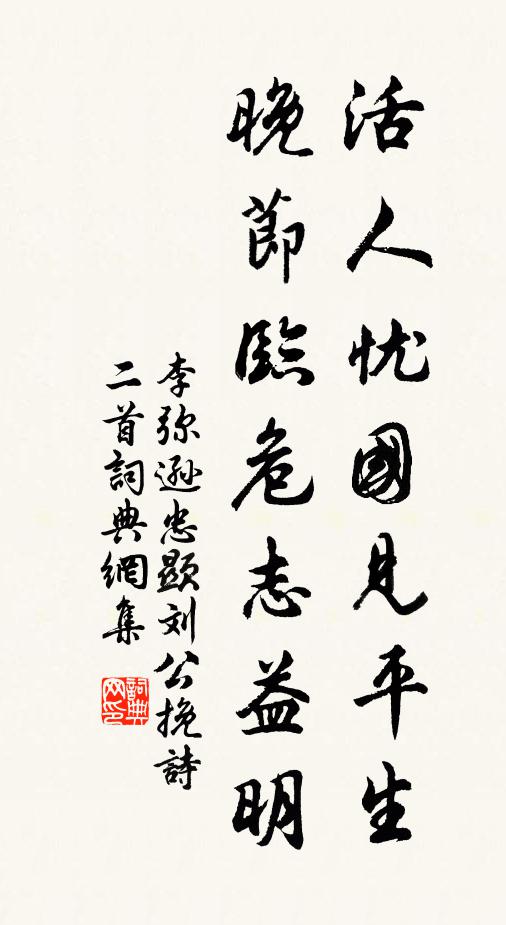 活人忧國見平生
晚節臨危志益明
李弥遜忠顯刘公挽詩
二首詞典網集
詞典
网印